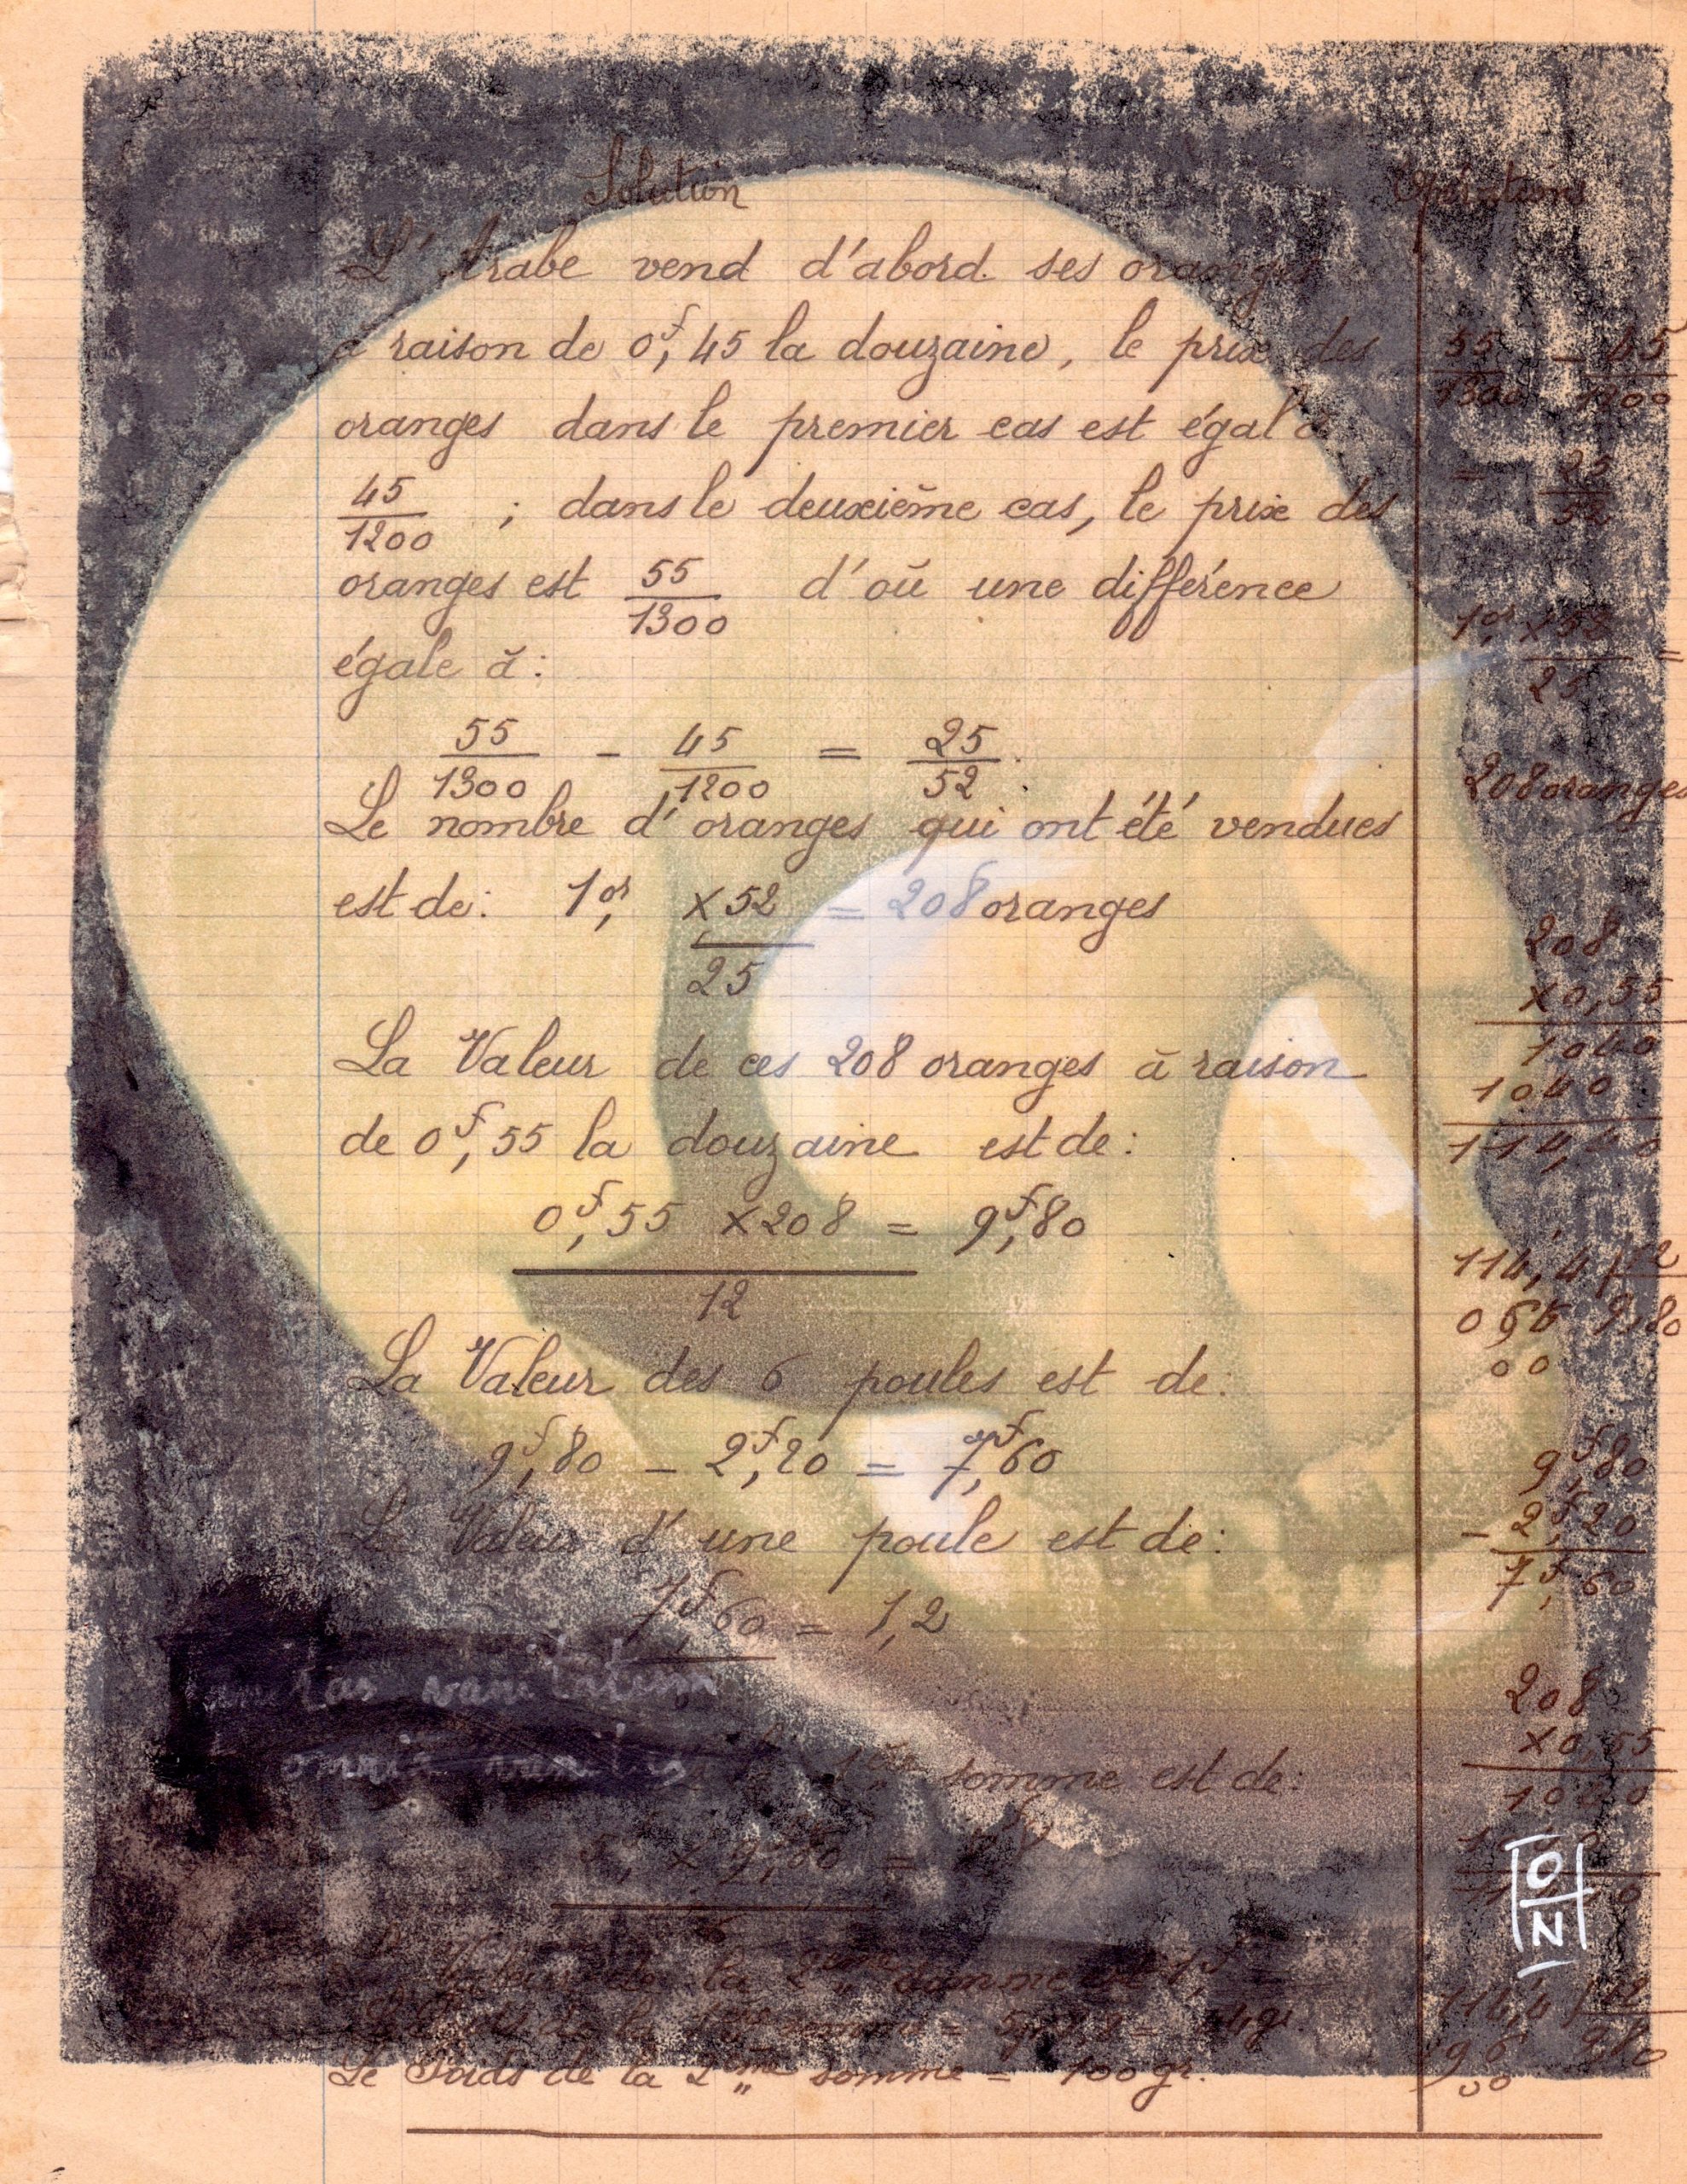 Solution
L'Arabe vend d'abord ses oranges
à raison de 0f,45 la douzaine, le prix des
oranges dans le premier cas est égal à
45/1200 ; dans le deuxième cas, le prix des
oranges est 55/1300 d'où une différence
égale à :
55/1300 - 45/1200 = 25/52.
Le nombre d'oranges qui ont été vendues
est de : 1or, × 52 = 208 oranges
25
La Valeur de ces 208 oranges à raison
de 0f,55 la douzaine est de :
0f,55 × 208 = 9f,80
12
La Valeur des 6 poules est de :
9f,80 - 2f,20 = 7f,60
La Valeur d'une poule est de :
7f,60 = 1,2
vanitatum
omnia vanitas
somme est de :
× 9f,80 =
6
Valeur de la 2ème somme
Le Poids de la
Le Poids de la 2ème somme = 100 gr.
Opérations
55/1300 - 45/1200
= 25/52
1or, × 52 =
25
208 oranges
208
×0,55
1040
1040
114,40
114,4 12
066 9,80
00
9f,80
- 2f,20
7f,60
208
×0,55
1040
O
N
114,4 12
96 980
00